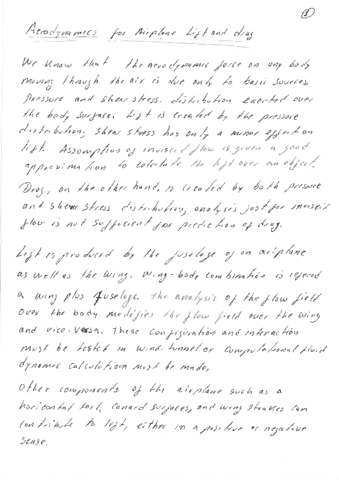 ①
Aerodynamics for Airplane Lift and drag
We know that the aerodynamic force on any body
moving though the air is due only to basic sources.
Pressure and shear stress. distribution exerted over
the body surface. Lift is created by the pressure
distribution, shear stress has only a minor effect on
lift. Assumption of inviscid flow is given a good
approximation to calculate the lift over an object.
Drag, on the other hand, is created by both pressure
and shear stress distribution, analysis just for inviscid
flow is not sufficient for prediction of drag.
Lift is produced by the fuselage of an airplane
as well as the wing. Wing-body combination is refered
a wing plus fuselage. the analysis of the flow field
over the body modifies the flow field over the wing
and vice-versa. These configuration and interaction
must be tested in wind-tunnel or computational fluid
dynamic calculation must be made.
Other components of the airplane such as a
horizontal tail, canard surfaces, and wing strakes can
contribute to lift, either in a positive or negative
sense.